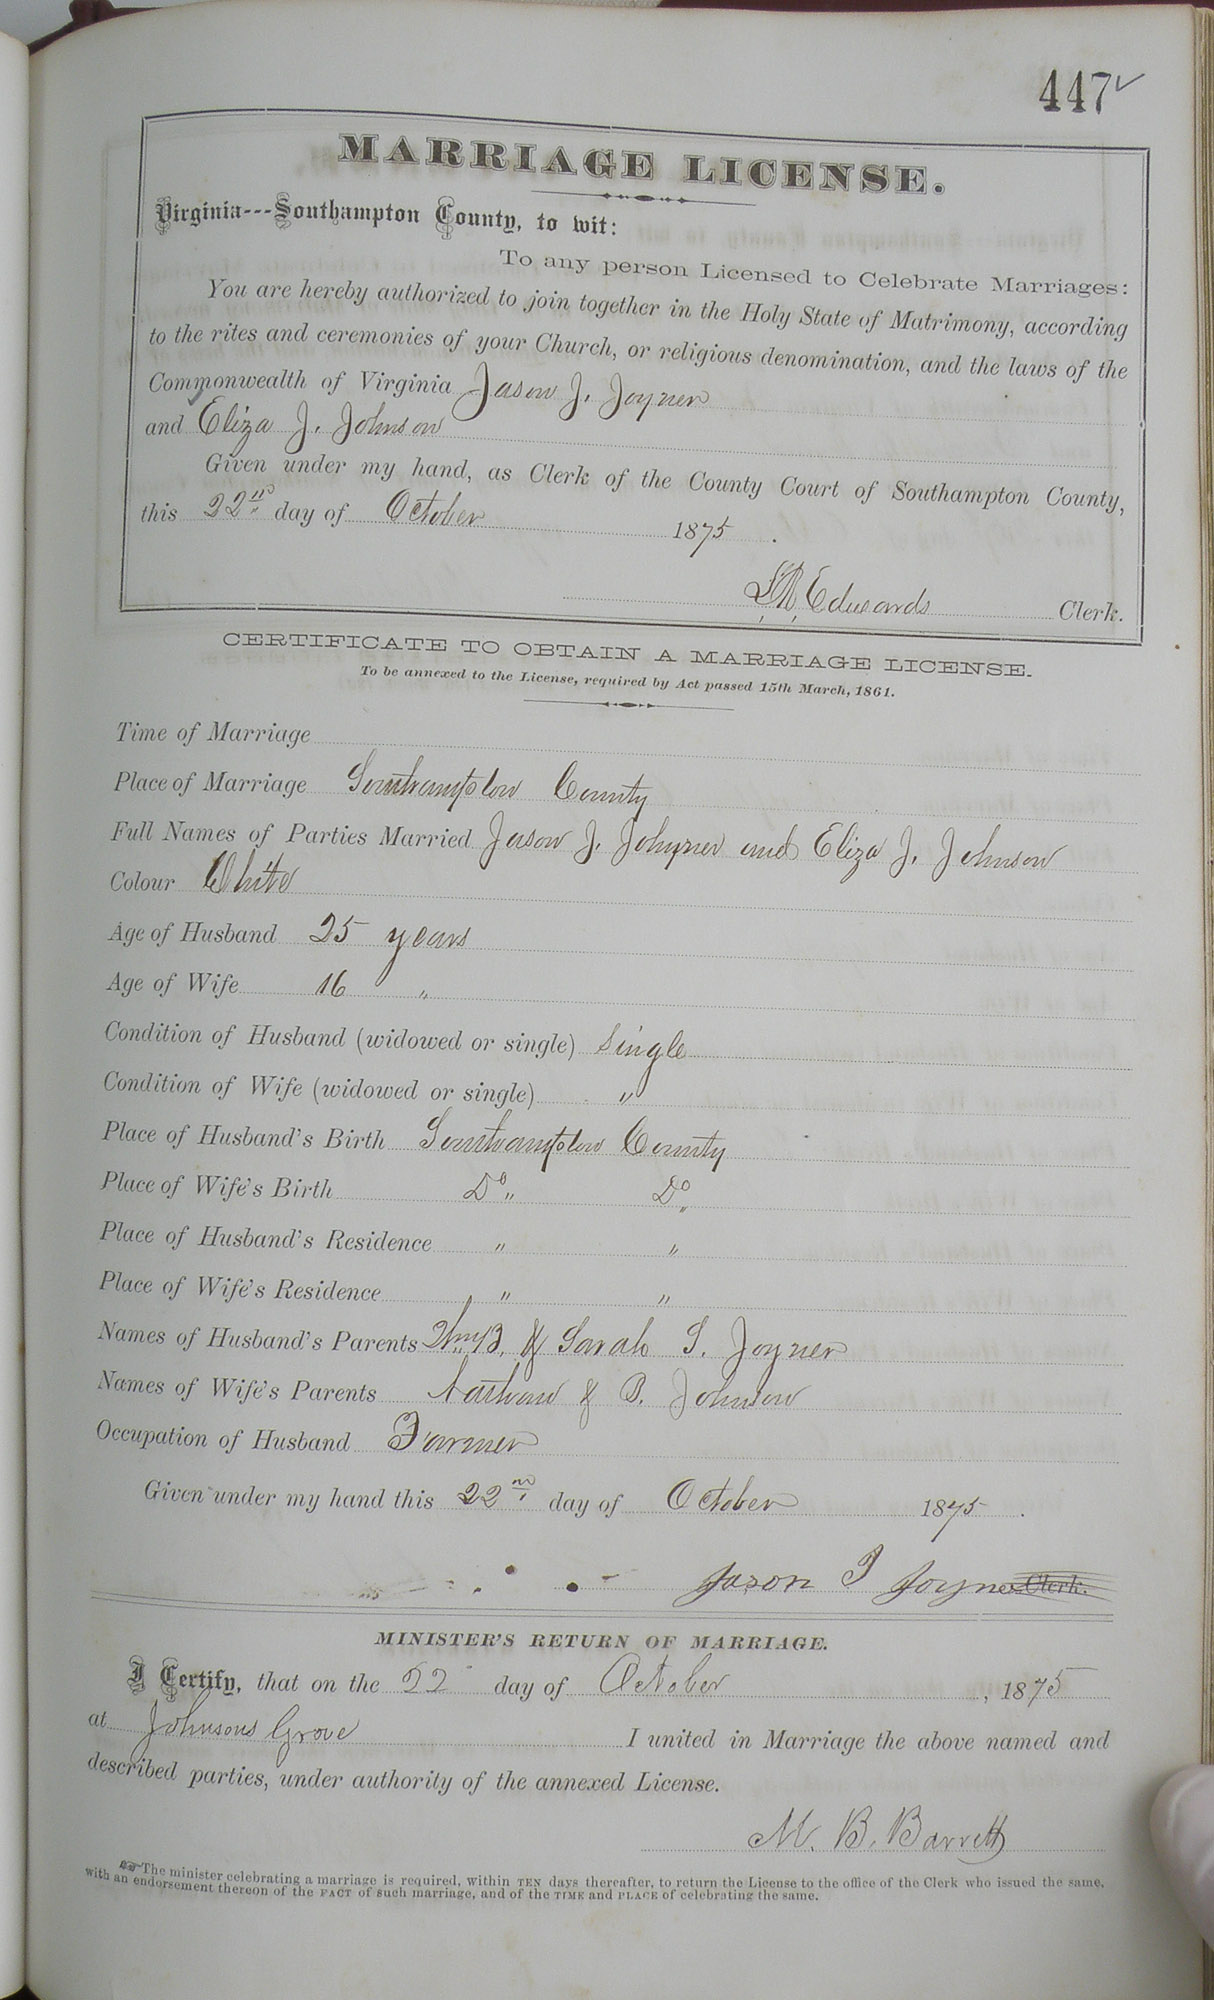 447
MARRIAGE LICENSE.
Virginia---Southampton County, to wit:
To any person Licensed to Celebrate Marriages:
You are hereby authorized to join together in the Holy State of Matrimony, according
to the rites and ceremonies of your Church, or religious denomination, and the laws of the
Commonwealth of Virginia Jason J. Joyner
and Eliza J. Johnson
Given under my hand, as Clerk of the County Court of Southampton County,
this 22nd day of October 1875.
L.R. Edwards Clerk.
CERTIFICATE TO OBTAIN A MARRIAGE LICENSE.
To be annexed to the License, required by Act passed 15th March, 1861.
Time of Marriage
Place of Marriage Southampton County
Full Names of Parties Married Jason J. Johyner and Eliza J. Johnson
Colour White
Age of Husband 25 years
Age of Wife 16 "
Condition of Husband (widowed or single) Single
Condition of Wife (widowed or single) "
Place of Husband's Birth Southampton County
Place of Wife's Birth Do " Do "
Place of Husband's Residence " "
Place of Wife's Residence " "
Names of Husband's Parents Wm B. & Sarah S. Joyner
Names of Wife's Parents Nathan & B. Johnson
Occupation of Husband Farmer
Given under my hand this 22nd day of October 1875.
Jason J Joyner Clerk.
MINISTER'S RETURN OF MARRIAGE.
I Certify, that on the 22 day of October, 1875
at Johnsons Grove I united in Marriage the above named and
described parties, under authority of the annexed License.
M. B. Barrett
The minister celebrating a marriage is required, within TEN days thereafter, to return the License to the office of the Clerk who issued the same,
with an endorsement thereon of the FACT of such marriage, and of the TIME and PLACE of celebrating the same.